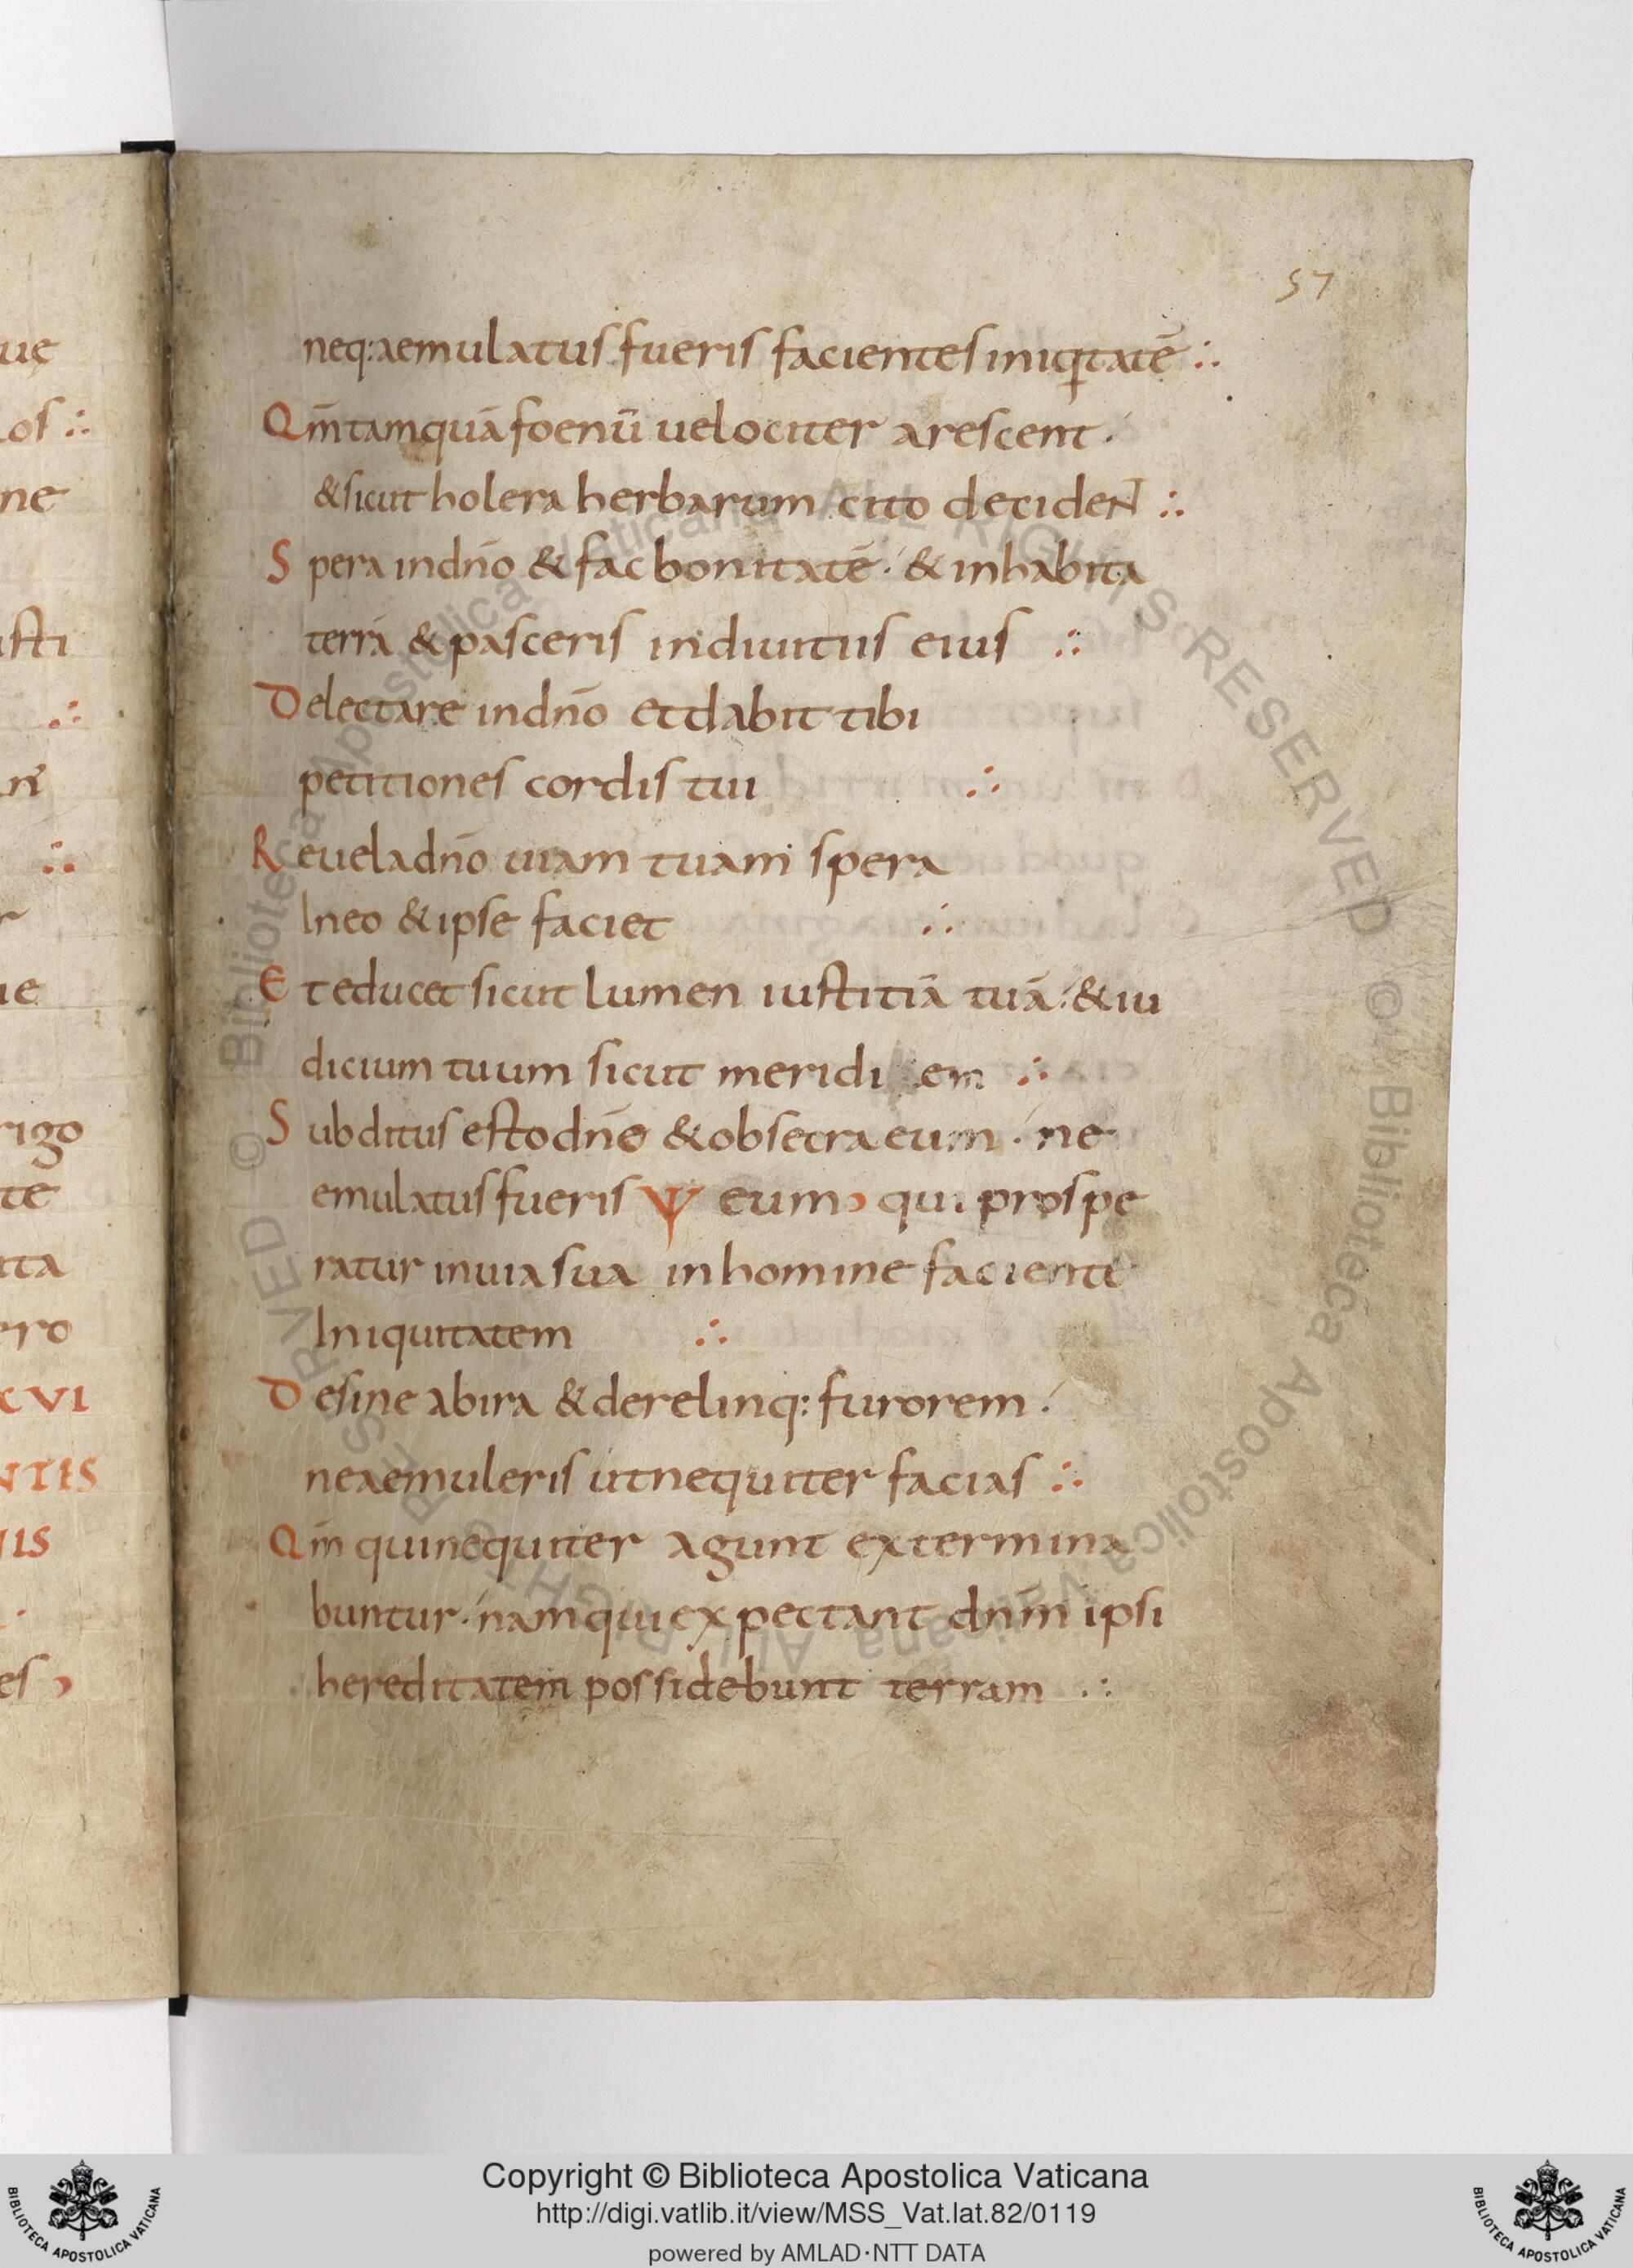 uę
los ∴
ne
usti
∴
∴
r
ue
rigo
te
ita
ero
XVI
NTES
IIS
es
57
neq: aemulatus fueris facientes iniqitatē ∴
Qm̄ tamquā foenū uelociter arescent.
& sicut holera herbarum cito decideNT ∴
Spera in dn̄o & fac bonitatē. & inhabita
terrā & pasceris in diuitiis eius ∴
Delectare in dn̄o et dabit tibi
petitiones cordis tui ∴
Reuela dn̄o uiam tuam spera
In eo & ipse faciet ∴
Et educet sicut lumen iustitiā tuā. & iu
dicium tuum sicut meridi em ∴
Subditus esto dn̄o & obsecra eum. ne
emulatus fueris Ψ eum qui prospe
ratur in uia sua in homine faciente
Iniquitatem ∴
Desine ab ira & derelinq: furorem.
ne aemuleris ut nequiter facias ∴
Qm̄ qui nequiter agunt extermina
buntur. nam qui expectant dn̄m ipsi
hereditatem possidebunt terram ∴
© Biblioteca Apostolica Vaticana ALL RIGHTS RESERVED
© Biblioteca Apostolica Vaticana ALL RIGHTS RESERVED
BIBLIOTECA APOSTOLICA VATICANA
Copyright © Biblioteca Apostolica Vaticana
http://digi.vatlib.it/view/MSS_Vat.lat.82/0119
powered by AMLAD·NTT DATA
BIBLIOTECA APOSTOLICA VATICANA